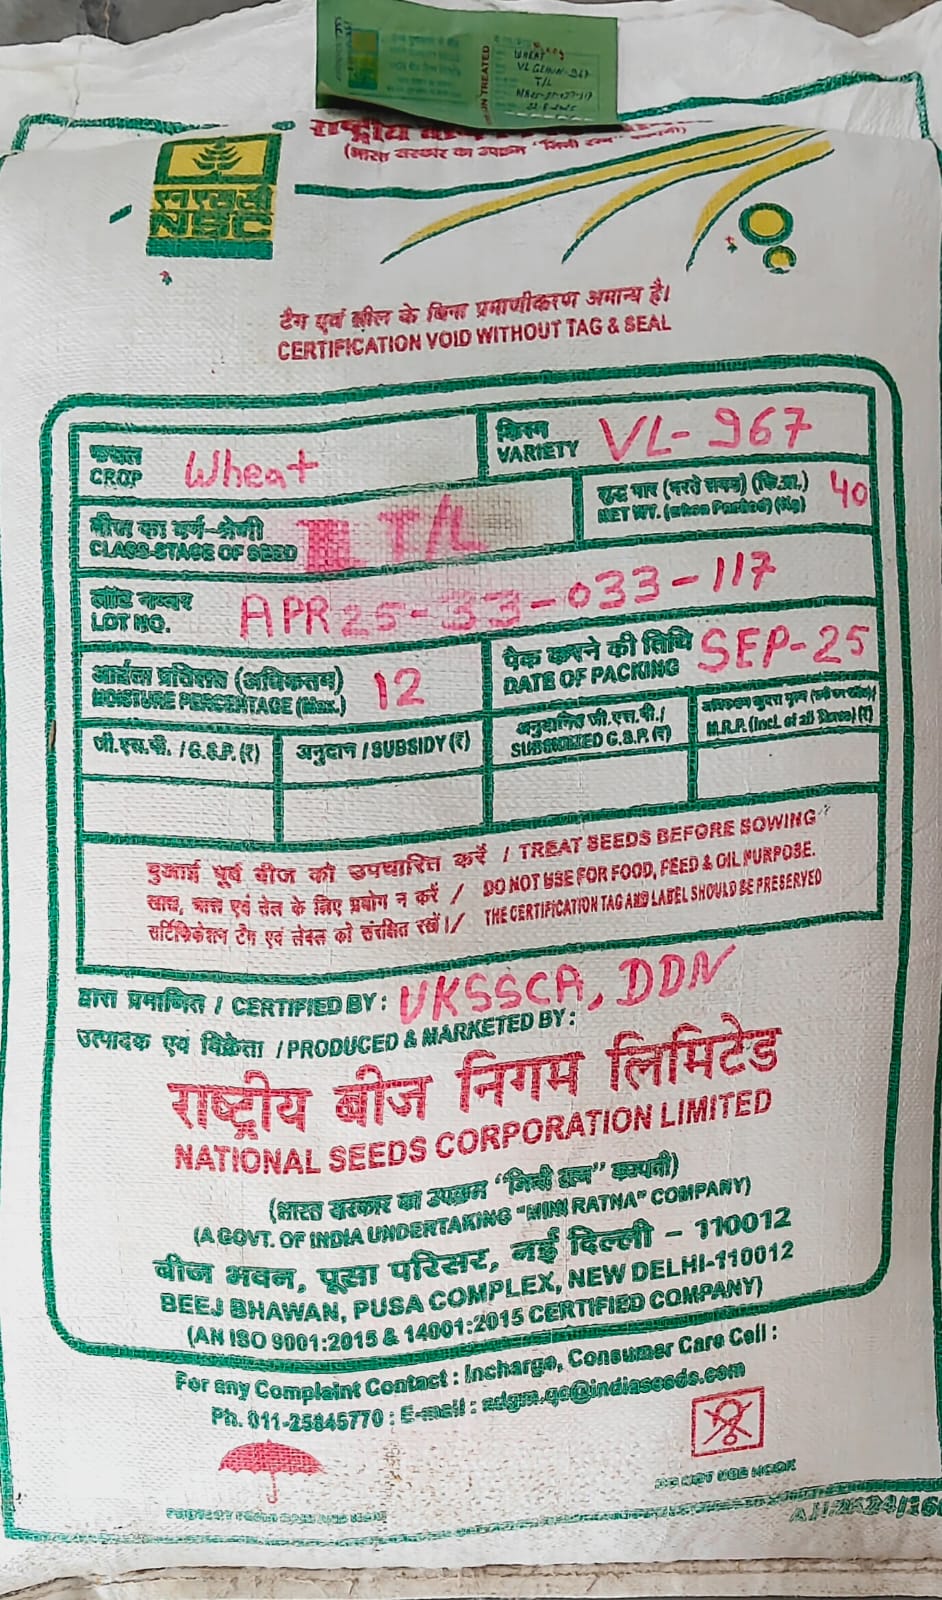 UN TREATED
WHEAT
T/L
राष्ट्रीय
(भारत सरकार का उपक्रम "मिनी रत्न" कम्पनी)
एन एस सी
NSC
टैग एवं सील के बिना प्रमाणीकरण अमान्य है।
CERTIFICATION VOID WITHOUT TAG & SEAL
फसल
CROP Wheat
किस्म
VARIETY VL-967
बीज का वर्ग-श्रेणी
CLASS-STAGE OF SEED T/L
शुद्ध भार (भरते समय) (कि.ग्रा.)
NET WT. (when Packed) (Kg) 40
लॉट नम्बर
LOT NO. APR25-33-033-117
आर्द्रता प्रतिशत (अधिकतम)
MOISTURE PERCENTAGE (Max.) 12
पैक करने की तिथि
DATE OF PACKING SEP-25
जी.एस.पी. / G.S.P. (₹)
अनुदान / SUBSIDY (₹)
अनुदानित जी.एस.पी./
SUBSIDIZED G.S.P. (₹)
M.R.P. (Incl. of all Taxes) (₹)
बुआई पूर्व बीज को उपचारित करें / TREAT SEEDS BEFORE SOWING
खाद्य, चारा एवं तेल के लिए प्रयोग न करें / DO NOT USE FOR FOOD, FEED & OIL PURPOSE.
सर्टिफिकेशन टैग एवं लेबल को संरक्षित रखें।/ THE CERTIFICATION TAG AND LABEL SHOULD BE PRESERVED
द्वारा प्रमाणित / CERTIFIED BY : UKSSCA, DDN
उत्पादक एवं विक्रेता / PRODUCED & MARKETED BY :
राष्ट्रीय बीज निगम लिमिटेड
NATIONAL SEEDS CORPORATION LIMITED
(भारत सरकार का उपक्रम "मिनी रत्न" कम्पनी)
(A GOVT. OF INDIA UNDERTAKING "MINI RATNA" COMPANY)
बीज भवन, पूसा परिसर, नई दिल्ली - 110012
BEEJ BHAWAN, PUSA COMPLEX, NEW DELHI-110012
(AN ISO 9001:2015 & 14001:2015 CERTIFIED COMPANY)
For any Complaint Contact : Incharge, Consumer Care Cell :
Ph. 011-25845770 : E-mail : adgm.qc@indiaseeds.com
DO NOT USE HOOK